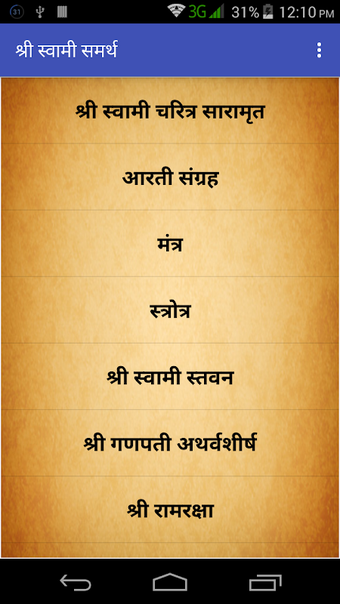 31 3G 31% 12:10 PM
श्री स्वामी समर्थ
श्री स्वामी चरित्र सारामृत
आरती संग्रह
मंत्र
स्त्रोत्र
श्री स्वामी स्तवन
श्री गणपती अथर्वशीर्ष
श्री रामरक्षा